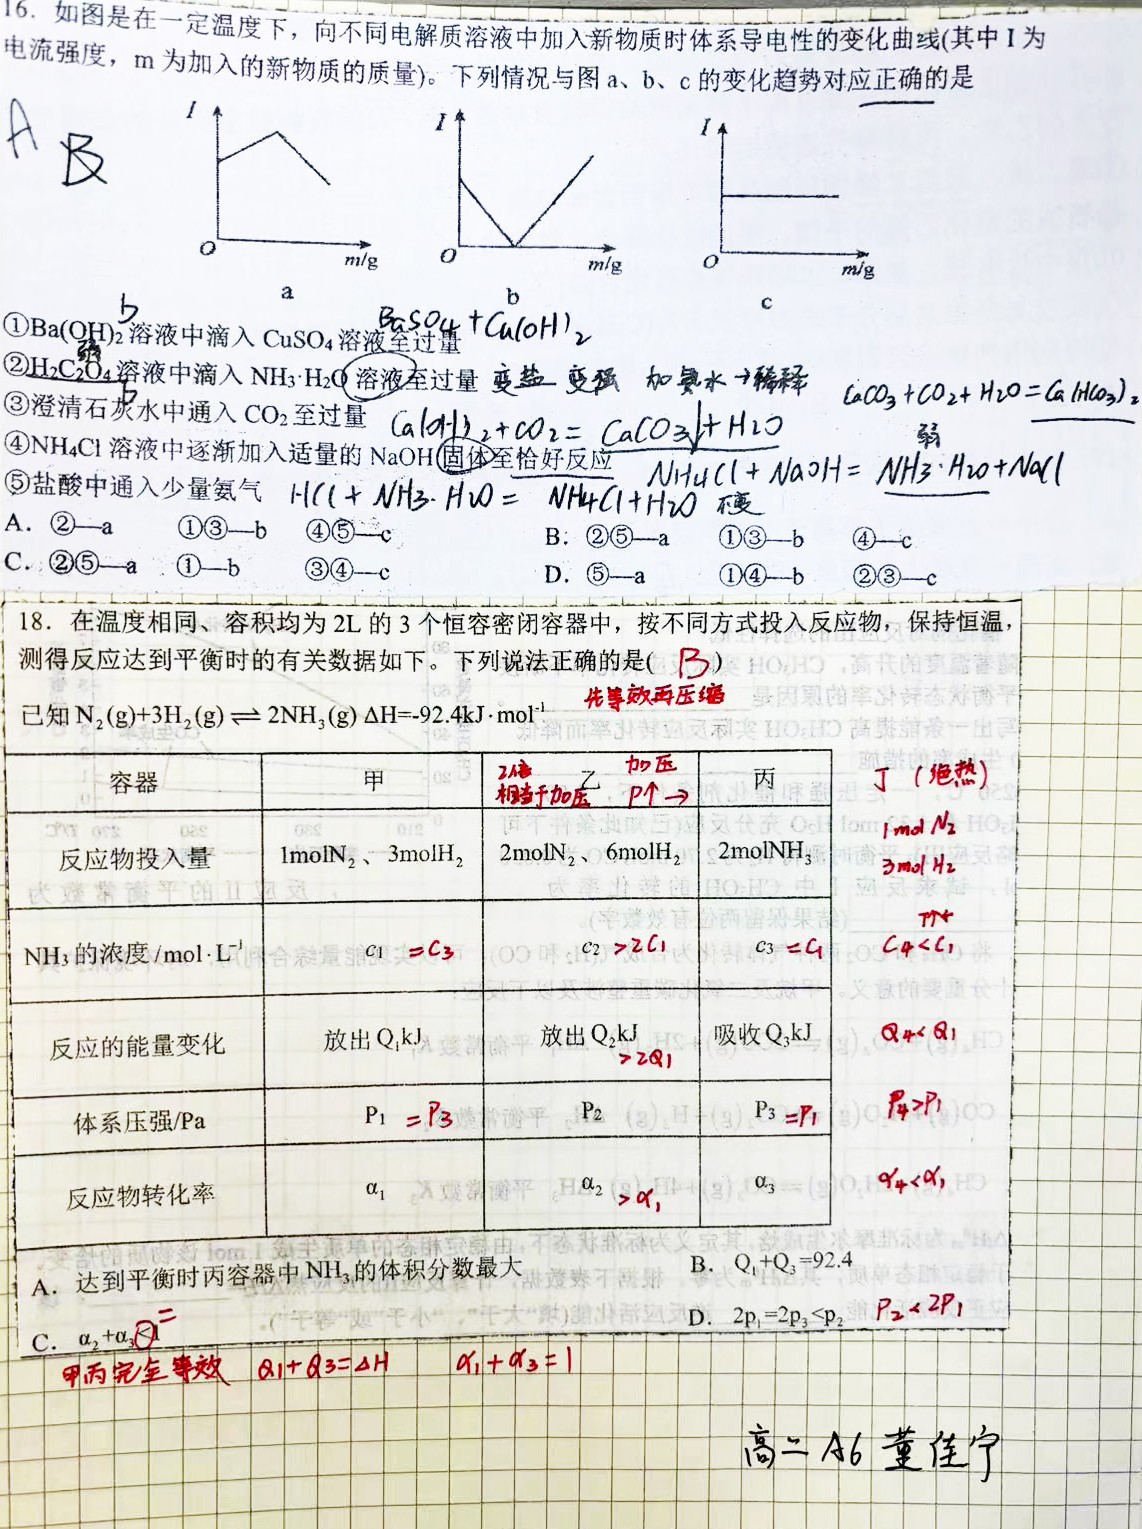 16. 如图是在一定温度下，向不同电解质溶液中加入新物质时体系导电性的变化曲线(其中 I 为
电流强度，m 为加入的新物质的质量)。下列情况与图 a、b、c 的变化趋势对应正确的是
A B
I
O
m/g
a
I
O
m/g
b
I
O
m/g
c
b
BaSO4 + Cu(OH)2
①Ba(OH)2 溶液中滴入 CuSO4 溶液至过量
弱
②H2C2O4 溶液中滴入 NH3·H2O 溶液至过量 变盐 变强 加氨水→稀释
b
CaCO3 + CO2 + H2O = Ca(HCO3)2
③澄清石灰水中通入 CO2 至过量 Ca(OH)2 + CO2 = CaCO3↓ + H2O
弱
④NH4Cl 溶液中逐渐加入适量的 NaOH 固体至恰好反应 NH4Cl + NaOH = NH3·H2O + NaCl
⑤盐酸中通入少量氨气 HCl + NH3·H2O = NH4Cl + H2O 不变
A. ②—a ①③—b ④⑤—c B. ②⑤—a ①③—b ④—c
C. ②⑤—a ①—b ③④—c D. ⑤—a ①④—b ②③—c
18. 在温度相同、容积均为 2L 的 3 个恒容密闭容器中，按不同方式投入反应物，保持恒温，
测得反应达到平衡时的有关数据如下。下列说法正确的是( B )
先等效再压缩
已知 N2(g)+3H2(g)⇌2NH3(g) ΔH=-92.4kJ·mol-1
容器 甲 2倍 相当于加压 乙 加压 P↑ → 丙 丁 (绝热)
反应物投入量 1molN2、3molH2 2molN2、6molH2 2molNH3 1mol N2 3mol H2
T↑←
NH3 的浓度/mol·L-1 c1 =C3 c2 >2C1 c3 =C1 C4<C1
反应的能量变化 放出 Q1kJ 放出 Q2kJ >2Q1 吸收 Q3kJ Q4<Q1
体系压强/Pa P1 =P3 P2 P3 =P1 P4>P1
反应物转化率 α1 α2 >α1 α3 α4<α1
A. 达到平衡时丙容器中 NH3 的体积分数最大 B. Q1+Q3=92.4
C. α2+α3<1 = D. 2p1=2p3<p2 P2<2P1
甲丙完全等效 Q1+Q3=ΔH α1+α3=1
高二 A6 董佳宁